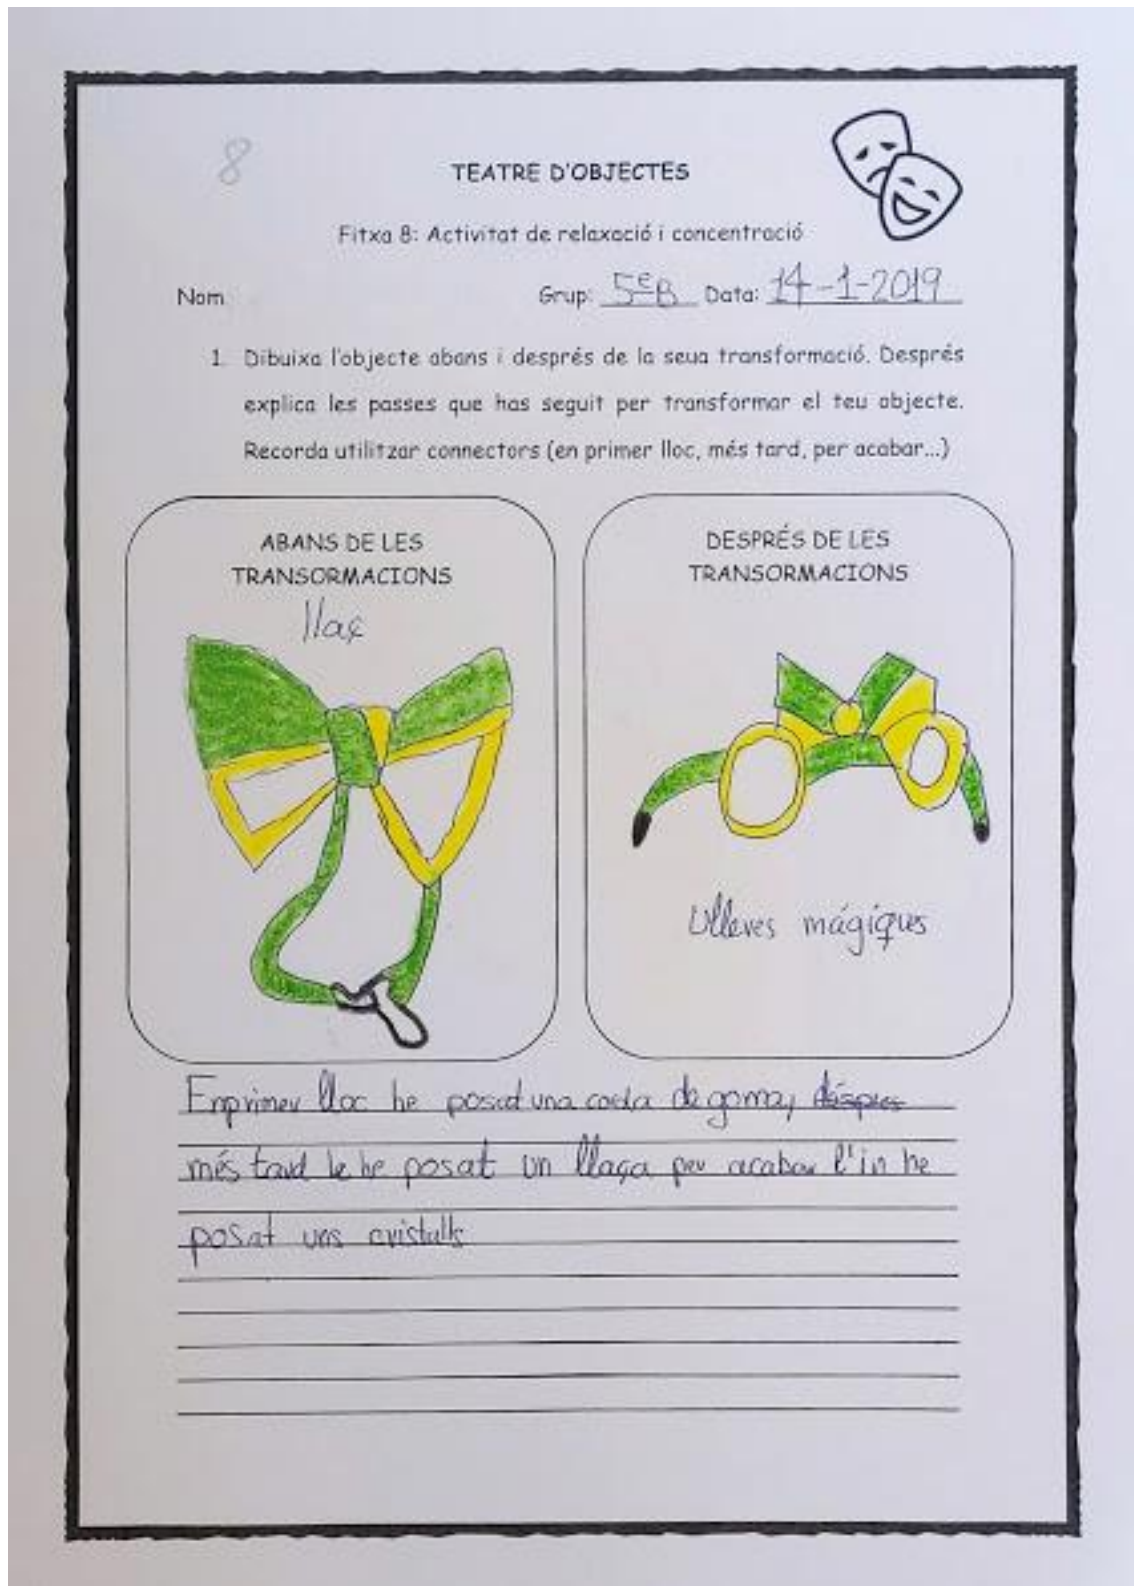 8
TEATRE D'OBJECTES
Fitxa 8: Activitat de relaxació i concentració
Nom Grup: 5eB Data: 14-1-2019
1. Dibuixa l'objecte abans i després de la seua transformació. Després
explica les passes que has seguit per transformar el teu objecte.
Recorda utilitzar connectors (en primer lloc, més tard, per acabar...)
ABANS DE LES
TRANSORMACIONS
llaç
DESPRÉS DE LES
TRANSORMACIONS
Ulleres mágiques
Enprimer lloc he posat una corda de goma, déspres
més tard le he posat un llaça per acabar l'in he
posat uns cristalls